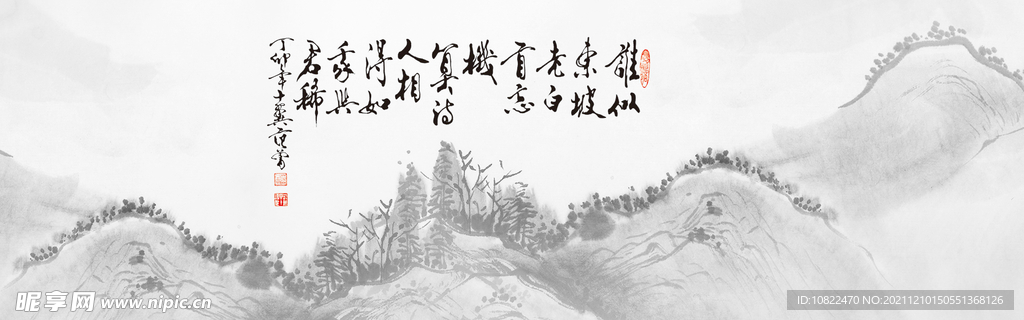 誰似
東坡
老白
首忘
機
算詩
人相
得如
我與
君稀
丁卯年十翼范曾
昵享网 www.nipic.cn
ID:10822470 NO:20211210150551368126